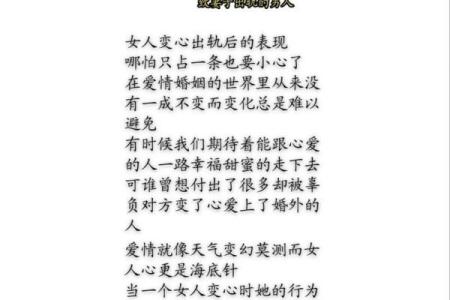 女人变心出轨后的表现
哪怕只占一条也要小心了
在爱情婚姻的世界里从来没
有一成不变而变化总是难以
避免
有时候我们期待着能跟心爱
的人一路幸福甜蜜的走下去
可谁曾想付出了很多却被辜
负对方变了心爱上了婚外的
人
爱情就像天气变幻莫测而女
人心更是海底针
当一个女人变心时她的行为